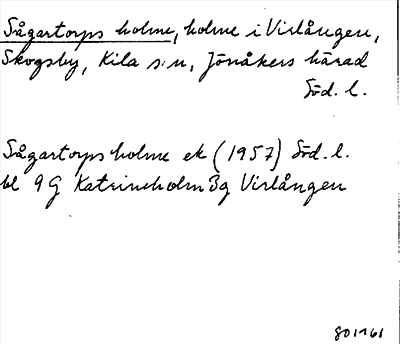 Sågartorps holme, holme i Virlången,
Skogsby, Kila s:n, Jönåkers härad
Söd. l.
Sågartorpsholme ek (1957) Söd. l.
bl 9G Katrineholm 3g Virlången
801161